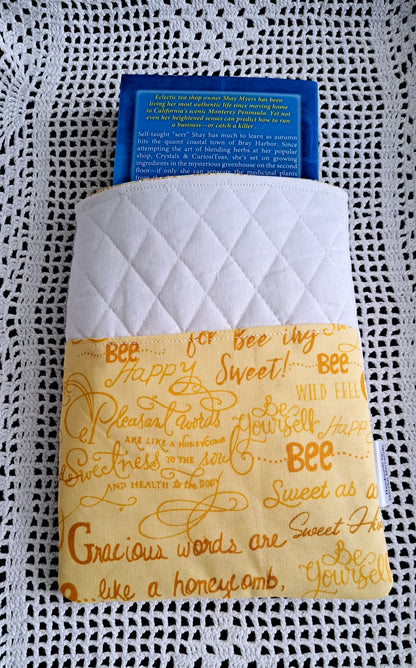 Eclectic tea shop owner Shay Myers has been
living her most authentic life since moving home
to California's scenic Monterey Peninsula. Yet not
even her heightened senses can predict how to run
a business—or catch a killer . . .
Self-taught "seer" Shay has much to learn as autumn
hits the quaint coastal town of Bray Harbor. Since
attempting the art of blending herbs at her popular
shop, Crystals & CuriosiTeas, she's set on growing
ingredients in the mysterious greenhouse on the second
floor—if only she can separate the medicinal plants
for Bee ing
Sweet!
BEE
Happy
BEE
WILD FREE
Pleasant words
ARE LIKE A HONEYCOMB
Sweetness TO THE soul
AND HEALTH to the BODY
Be
Yourself
Happy
BEE
Sweet as
Gracious words are
Sweet
Be
Yourself
like a honeycomb,